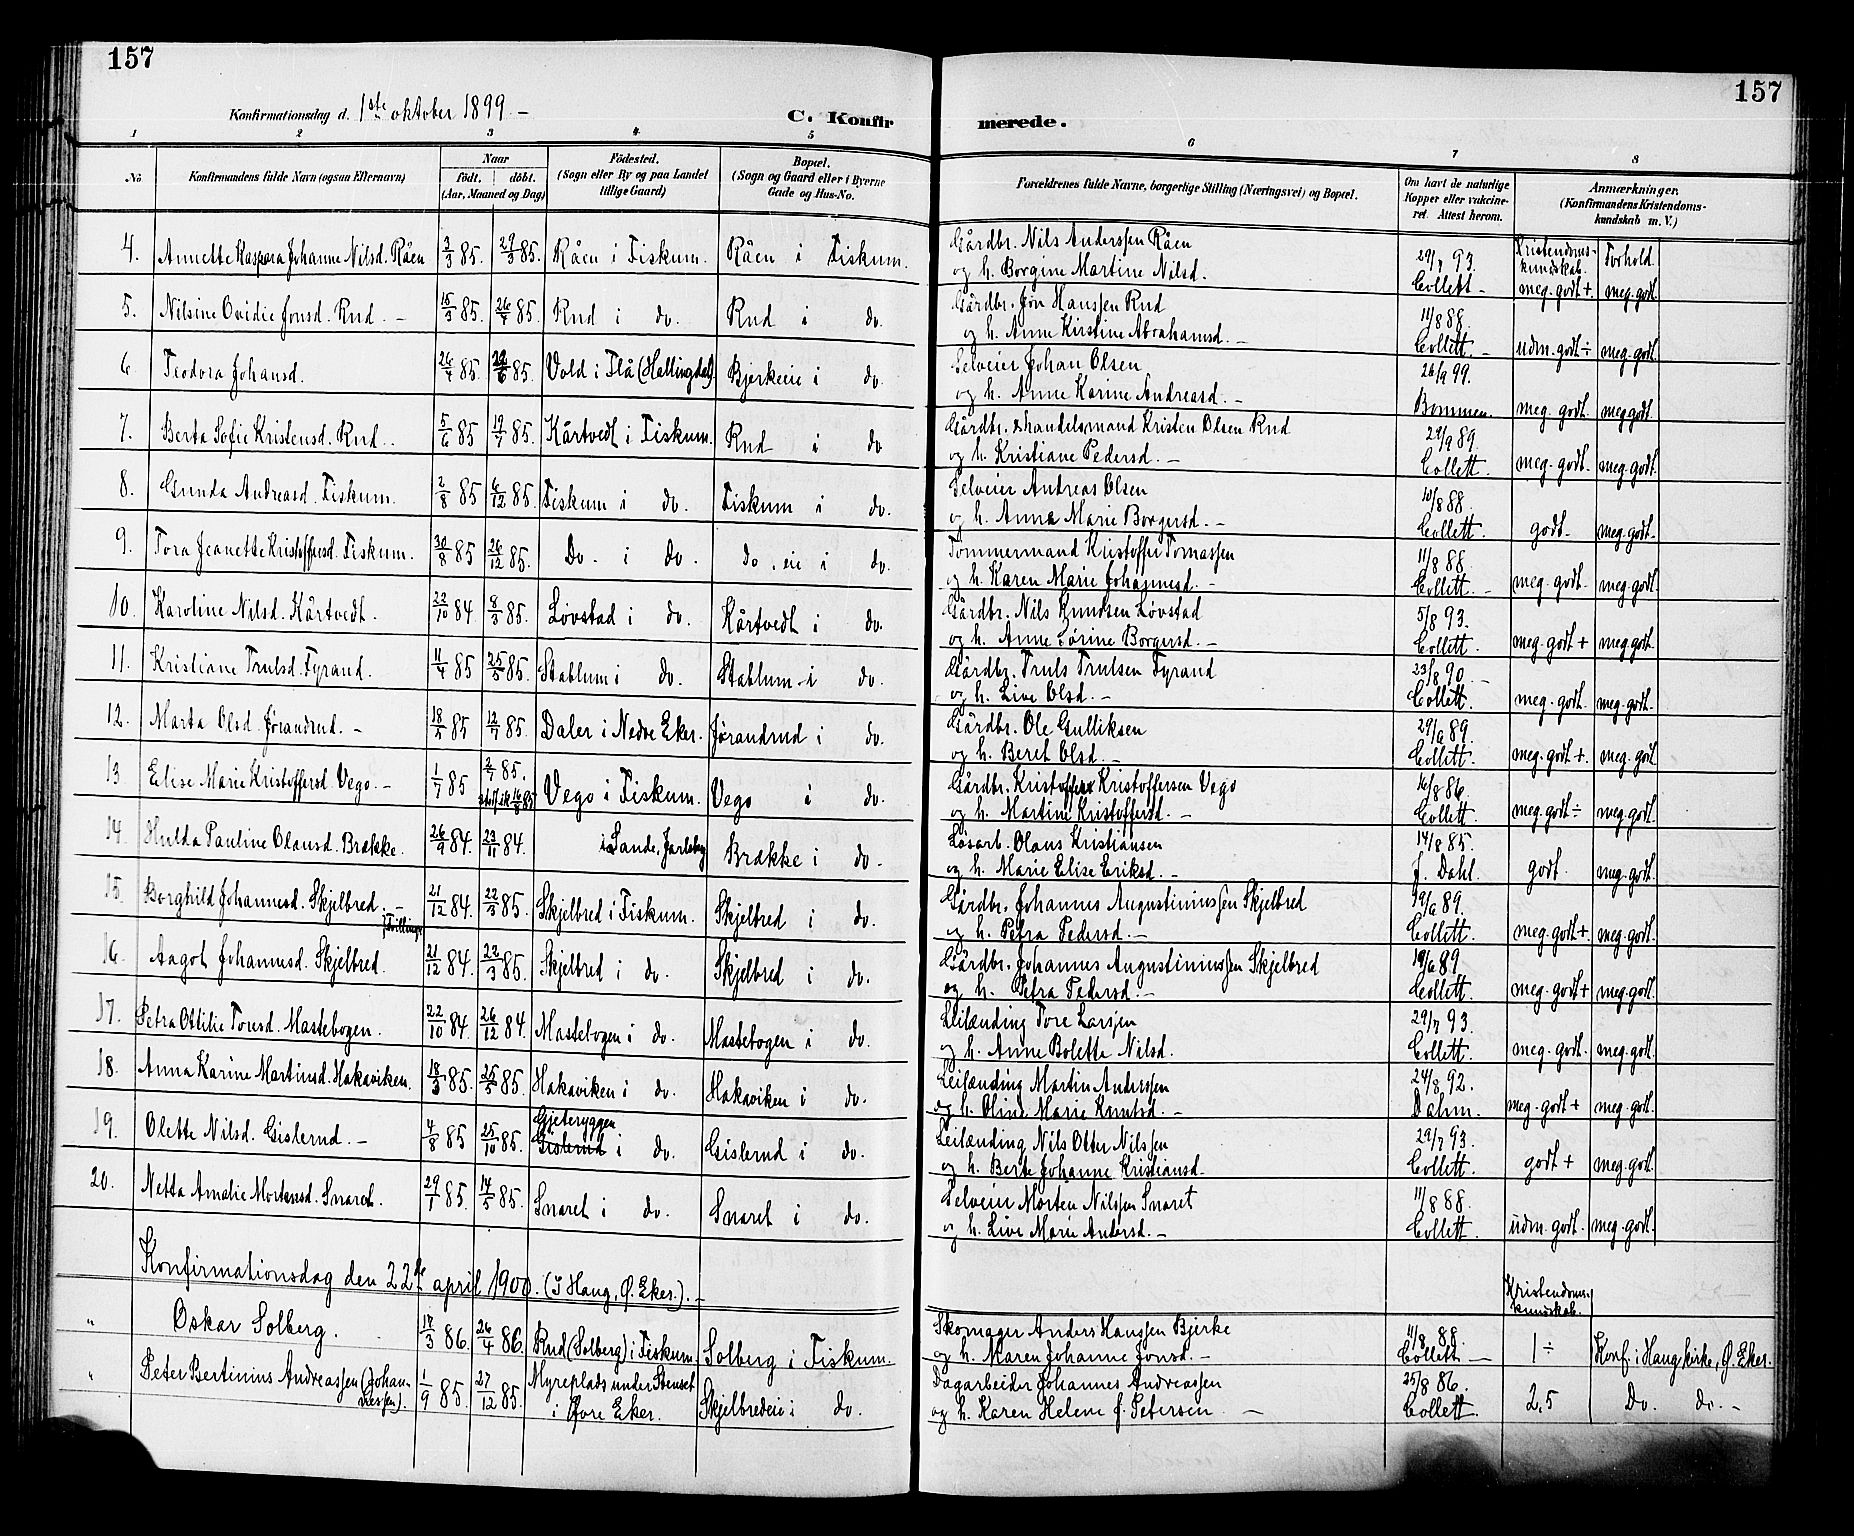 157
157
Konfirmationsdag d. 1ste oktober 1899. —
C. Konfir merede.
1 2 3 4 5 6 7 8
No
Konfirmandens fulde Navn (ogsaa Efternavn)
Naar
Födt. | döbt.
(Aar, Maaned og Dag)
Födested.
(Sogn eller By og paa Landet
tillige Gaard)
Bopæl.
(Sogn og Gaard eller i Byerne
Gade og Hus-No.
Forældrenes fulde Navne, borgerlige Stilling (Næringsvei) og Bopæl.
Om havt de naturlige
Kopper eller vakcine-
ret. Attest herom.
Anmærkninger.
(Konfirmandens Kristendoms-
kundskab m. V.)
Kristendoms-
kundskab. Forhold.
4. Annette Kaspara Johanne Nilsd. Råen 3/3 85. 29/3 85. Råen i Fiskum. Råen i Fiskum. Gårdbr. Nils Anderssen Råen
og h. Borgine Martine Nilsd. 29/7 93. Collett — meg. godt +. meg. godt.
5. Nilsine Ovidie Jonsd. Rud. — 15/3 85. 26/4 85. Rud i do. Rud i do. Gårdbr. Jon Hanssen Rud
og h. Anne Kirstine Abrahamsd. — 11/8 88. Collett. — udm. godt ÷ meg. godt.
6. Teodora Johansd. 26/4 85. 28/6 85. Vold i Flå (Hallingdal). Bjerkeeie i do. Selveier Johan Olsen
og h. Anne Karine Andreasd. — 26/9 99. Bommen. meg. godt. meg godt.
7. Berta Sofie Kristensd. Rud. 5/6 85 19/7 85. Kårtvedt i Fiskum. Rud i do Gårdbr. & handelsmand Kristen Olsen Rud
og h. Kristiane Pedersd. — 29/9 89. Collett. meg. godt. meg. godt.
8. Gunda Andreasd. Fiskum. 2/8 85 6/12 85. Fiskum i do. Fiskum i do. Selveier Andreas Olsen
og h. Anna Marie Borgersd. — 10/8 88. Collett — godt. meg. godt.
9. Tora Jeanette Kristoffersd. Fiskum. 30/8 85 26/12 85. Do. i do. do. eie i do. Tømmermand Kristoffer Tomassen
og h. Karen Marie Johannesd. — 11/8 88. Collett. — meg. godt. meg. godt.
10. Karoline Nilsd. Kårtvedt. 22/10 84. 8/3 85. Løvstad i do. Kårtvedt i do. Gårdbr. Nils Knudsen Løvstad
og h. Anne Sørine Borgersd. — 5/8 93. Collett. meg. godt + meg. godt.
11. Kristiane Trulsd. Fyrand. 11/4 85 25/5 85. Stablum i do. Stablum i do. Gårdbr. Truls Trulsen Fyrand
og h. Live Olsd. — 23/8 90. — Collett. meg. godt. meg. godt.
12. Marta Olsd. Jørandrud. — 18/5 85 12/7 85. Daler i Nedre Eker. Jørandrud i do. Gårdbr. Ole Gulliksen
og h. Beret Olsd. — 29/9 89. Collett. meg. godt +. meg. godt.
13. Elise Marie Kristoffersd. Vego. — 1/7 85 2/7 85. 16/8 85 Vego i Fiskum. Vego i do. Gårdbr. Kristoffer Kristoffersen Vego
og h. Martine Kristoffersd. — 16/8 86. Collett. meg. godt ÷ meg. godt.
14. Hulda Pauline Olausd. Brække. 26/9 84. 23/11 84. i Sande, Jarlsberg Brække i do. Løsarb. Olaus Kristiansen
og h. Marie Elise Eriksd. — 14/8 85. J. Dahl. godt. meg. godt.
15. Borghild Johannesd. Skjelbred. — } Tvillinger 21/12 84. 22/3 85. Skjelbred i Fiskum. Skjelbred i do. Gårdbr. Johannes Augustiniussen Skjelbred
og h. Petra Pedersd. — 19/9 89. Collett. meg. godt +. meg. godt.
16. Aagot Johannesd. Skjelbred. 21/12 84. 22/3 85. Skjelbred i do. Skjelbred i do. Gårdbr. Johannes Augustiniussen Skjelbred
og h. Petra Pedersd. — 19/9 89 Collett. meg. godt + meg. godt.
17. Petra Ottilie Toresd. Mastebogen. 22/10 84. 26/12 84. Mastebogen i do. Mastebogen i do. Leilænding Tore Larssen
og h. Anne Bolette Nilsd. 29/7 93. Collett. meg. godt. meg. godt.
18. Anna Karine Martinsd. Hakaviken. 18/3 85. 25/5 85. Hakaviken i do. Hakaviken i do. Leilænding Martin Anderssen
og h. Oline Marie Knutsd. — 24/8 92. Dahm. meg. godt + meg. godt.
19. Olette Nilsd. Gislerud. — 4/8 85 25/10 85. Gjeteryggen Gislerud i do. Gislerud i do. Leilænding Nils Otter Nilssen
og h. Berte Johanne Kristiansd. 29/7 93. Collett. godt + meg. godt.
20. Netta Amalie Mortensd. Snaret. 29/1 85. 14/5 85. Snaret i do. Snaret i do. Selveier Morten Nilssen Snaret
og h. Live Marie Andersd. — 11/8 88. Collett. udm. godt. meg. godt.
Konfirmationsdag den 22de april 1900. (I Haug, Ø. Eker.). —
Kristendoms-
kundskab.
" Oskar Solberg. 17/3 86. 26/4 86. Rud (Solberg) i Fiskum. Solberg i Fiskum. Skomager Anders Hanssen Bjerke
og h. Maren Johanne Jonsd. — 11/8 88. Collett — 1 ÷ Konf. i Haug kirke, Ø. Eker.
" Peter Bertinius Andreassen (Johan-
nessen). 1/9 85. 27/12 85. Myreplads under Stenset
i Øvre Eker. Skjelbredeie i do. Dagarbeider Johannes Andreassen
og h. Karen Helene J. Petersen. — 25/8 86. Collett. 2,5 Do. do. —